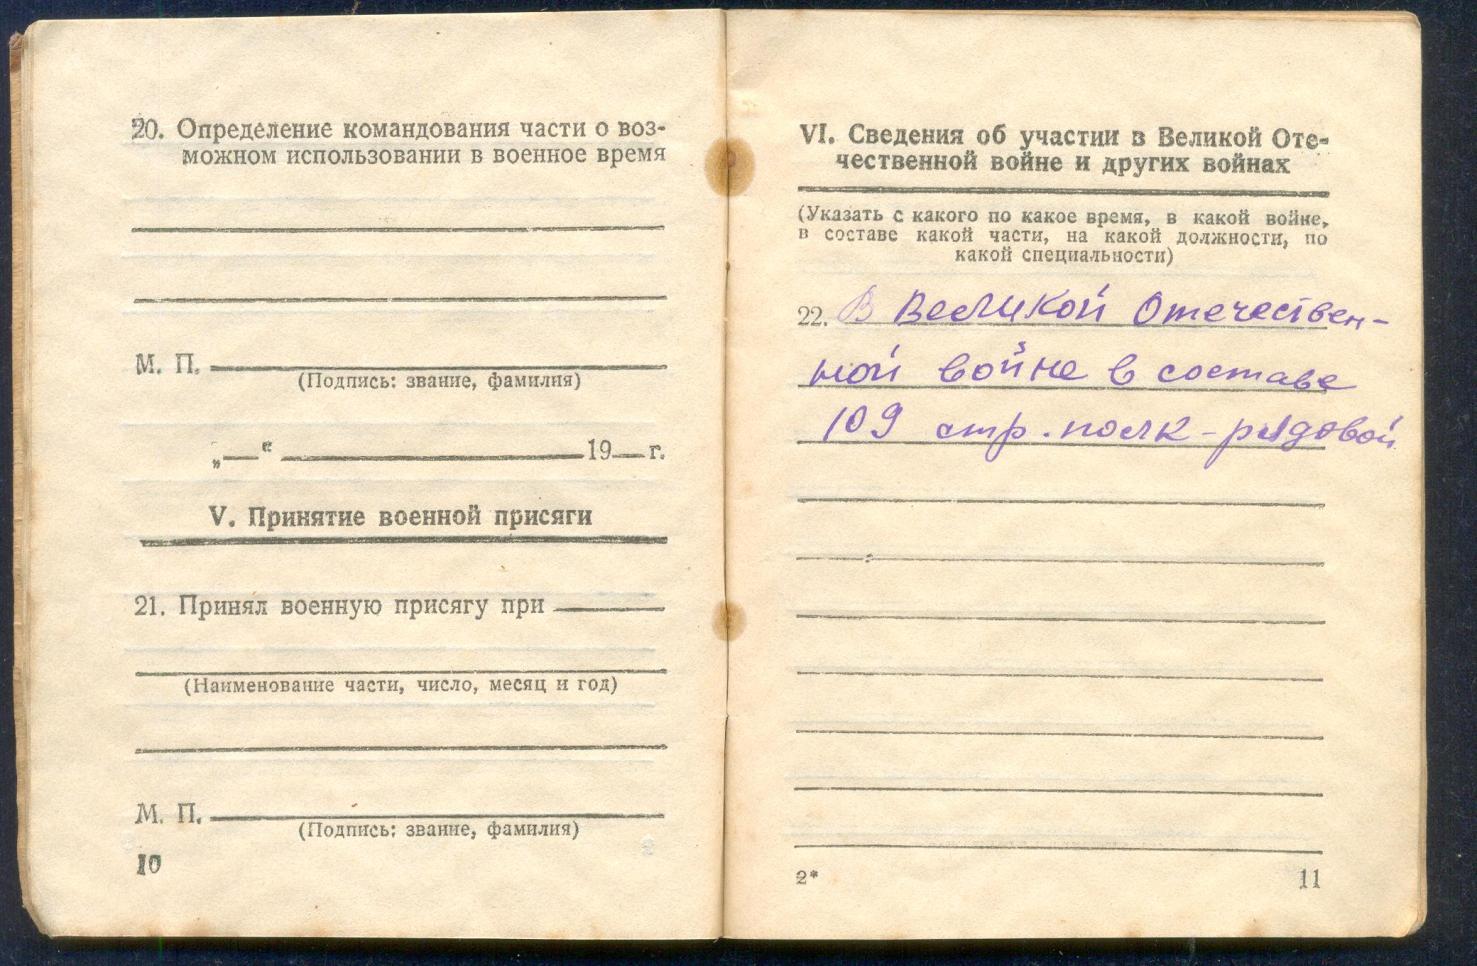 20. Определение командования части о воз-
можном использовании в военное время
М. П.
(Подпись: звание, фамилия)
„—“ 19— г.
V. Принятие военной присяги
21. Принял военную присягу при
(Наименование части, число, месяц и год)
М. П.
(Подпись: звание, фамилия)
10
VI. Сведения об участии в Великой Оте-
чественной войне и других войнах
(Указать с какого по какое время, в какой войне,
в составе какой части, на какой должности, по
какой специальности)
22. В Великой Отечествен-
ной войне в составе
109 стр. полк - рядовой
2*
11